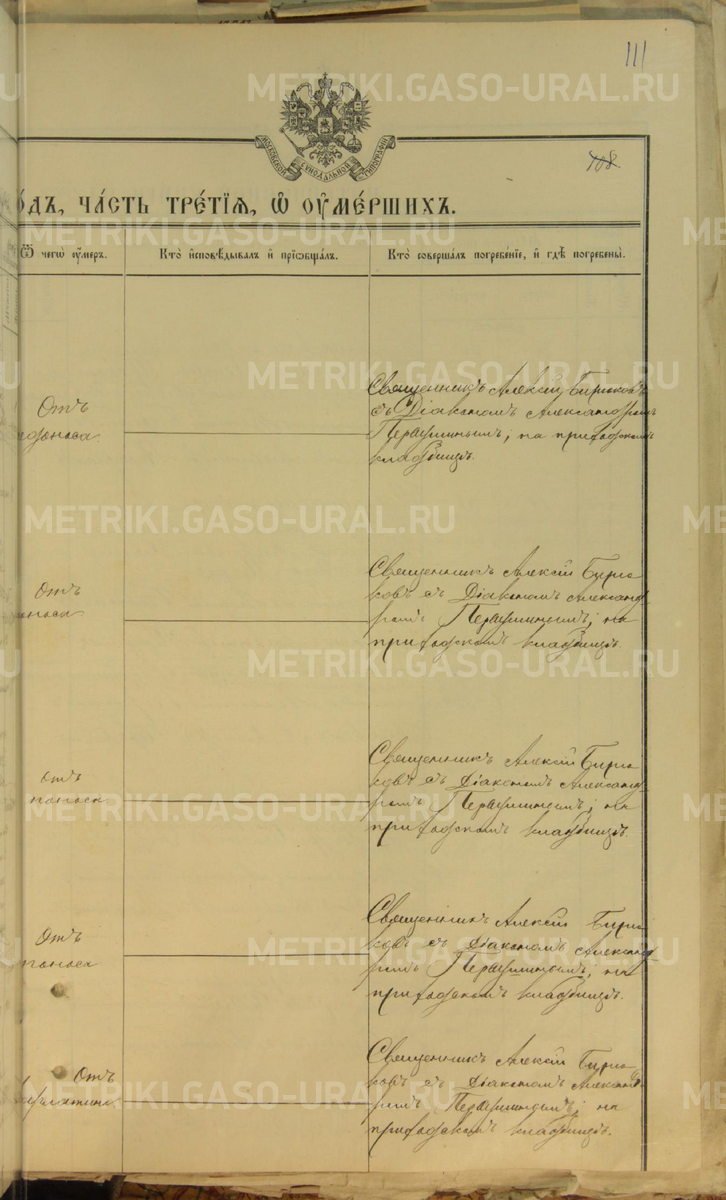 111
108.
МОСКОВСКОЙ СѴНОДАЛЬНОЙ ТИПОГРАФІИ
ѻдъ, ча́сть тре́тїѧ, ѡ҆ ᲂу҆ме́ршихъ.
Ѿ чегѡ̀ ᲂу҆́меръ.
Кто̀ и҆сповѣ́дывалъ и҆ прїѡбща́лъ.
Кто̀ соверша́лъ погребе́нїе, и҆ гдѣ̀ погребены̀.
Отъ
Священникъ Алексій Бирюковъ
съ Діакономъ Александромъ
Первушинымъ; на приходскомъ
кладбищѣ.
Отъ
поноса
Священникъ Алексій Бирю-
ковъ съ Діакономъ Александ-
ромъ Первушинымъ; на
приходскомъ кладбищѣ.
отъ
поноса
Священникъ Алексій Бирю-
ковъ съ Діакономъ Александ-
ромъ Первушинымъ; на
приходскомъ кладбищѣ.
Отъ
поноса
Священникъ Алексій Бирю-
ковъ съ Діакономъ Александ-
ромъ Первушинымъ; на
приходскомъ кладбищѣ.
Отъ
Священникъ Алексій Бирю-
ковъ съ Діакономъ Александ-
ромъ Первушинымъ; на
приходскомъ кладбищѣ.
METRIKI.GASO-URAL.RU